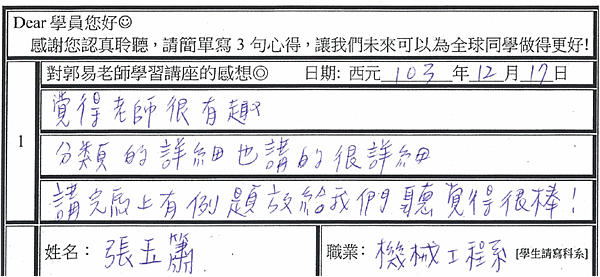 Dear 學員您好☺
感謝您認真聆聽，請簡單寫 3 句心得，讓我們未來可以為全球同學做得更好!
1 對郭易老師學習講座的感想◎ 日期: 西元 103 年 12 月 17 日
覺得老師很有趣
分類的詳細也講的很詳細
講完馬上有例題放給我們聽覺得很棒！
姓名： 張玉簫 職業： 機械工程系 [學生請寫科系]